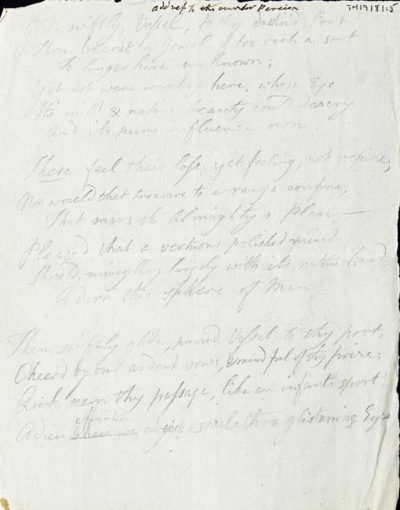 address to the
TM/9/8/15
swiftly, Vessel, to thy destin'd Port
Thou bearst a Jewel of too rich a sort
To longer here unknown;
not were wanting here, whose Eye
It's & native beauty could descry
And its pure influence own
These feel their loss yet feeling, not repine,
Nor would that treasure to a range confine,
That Almighty's Plan —
Pleased that a polished mind
Should, mingling largely with its native kind
Adorn this sphere of Man
Then swiftly glide, proud Vessel to thy port,
Cheer'd by our ardent vows, & mindful of thy prize:
Quick seem thy passage, like an infant's sport
Adieu affection smile thro glistening Eyes